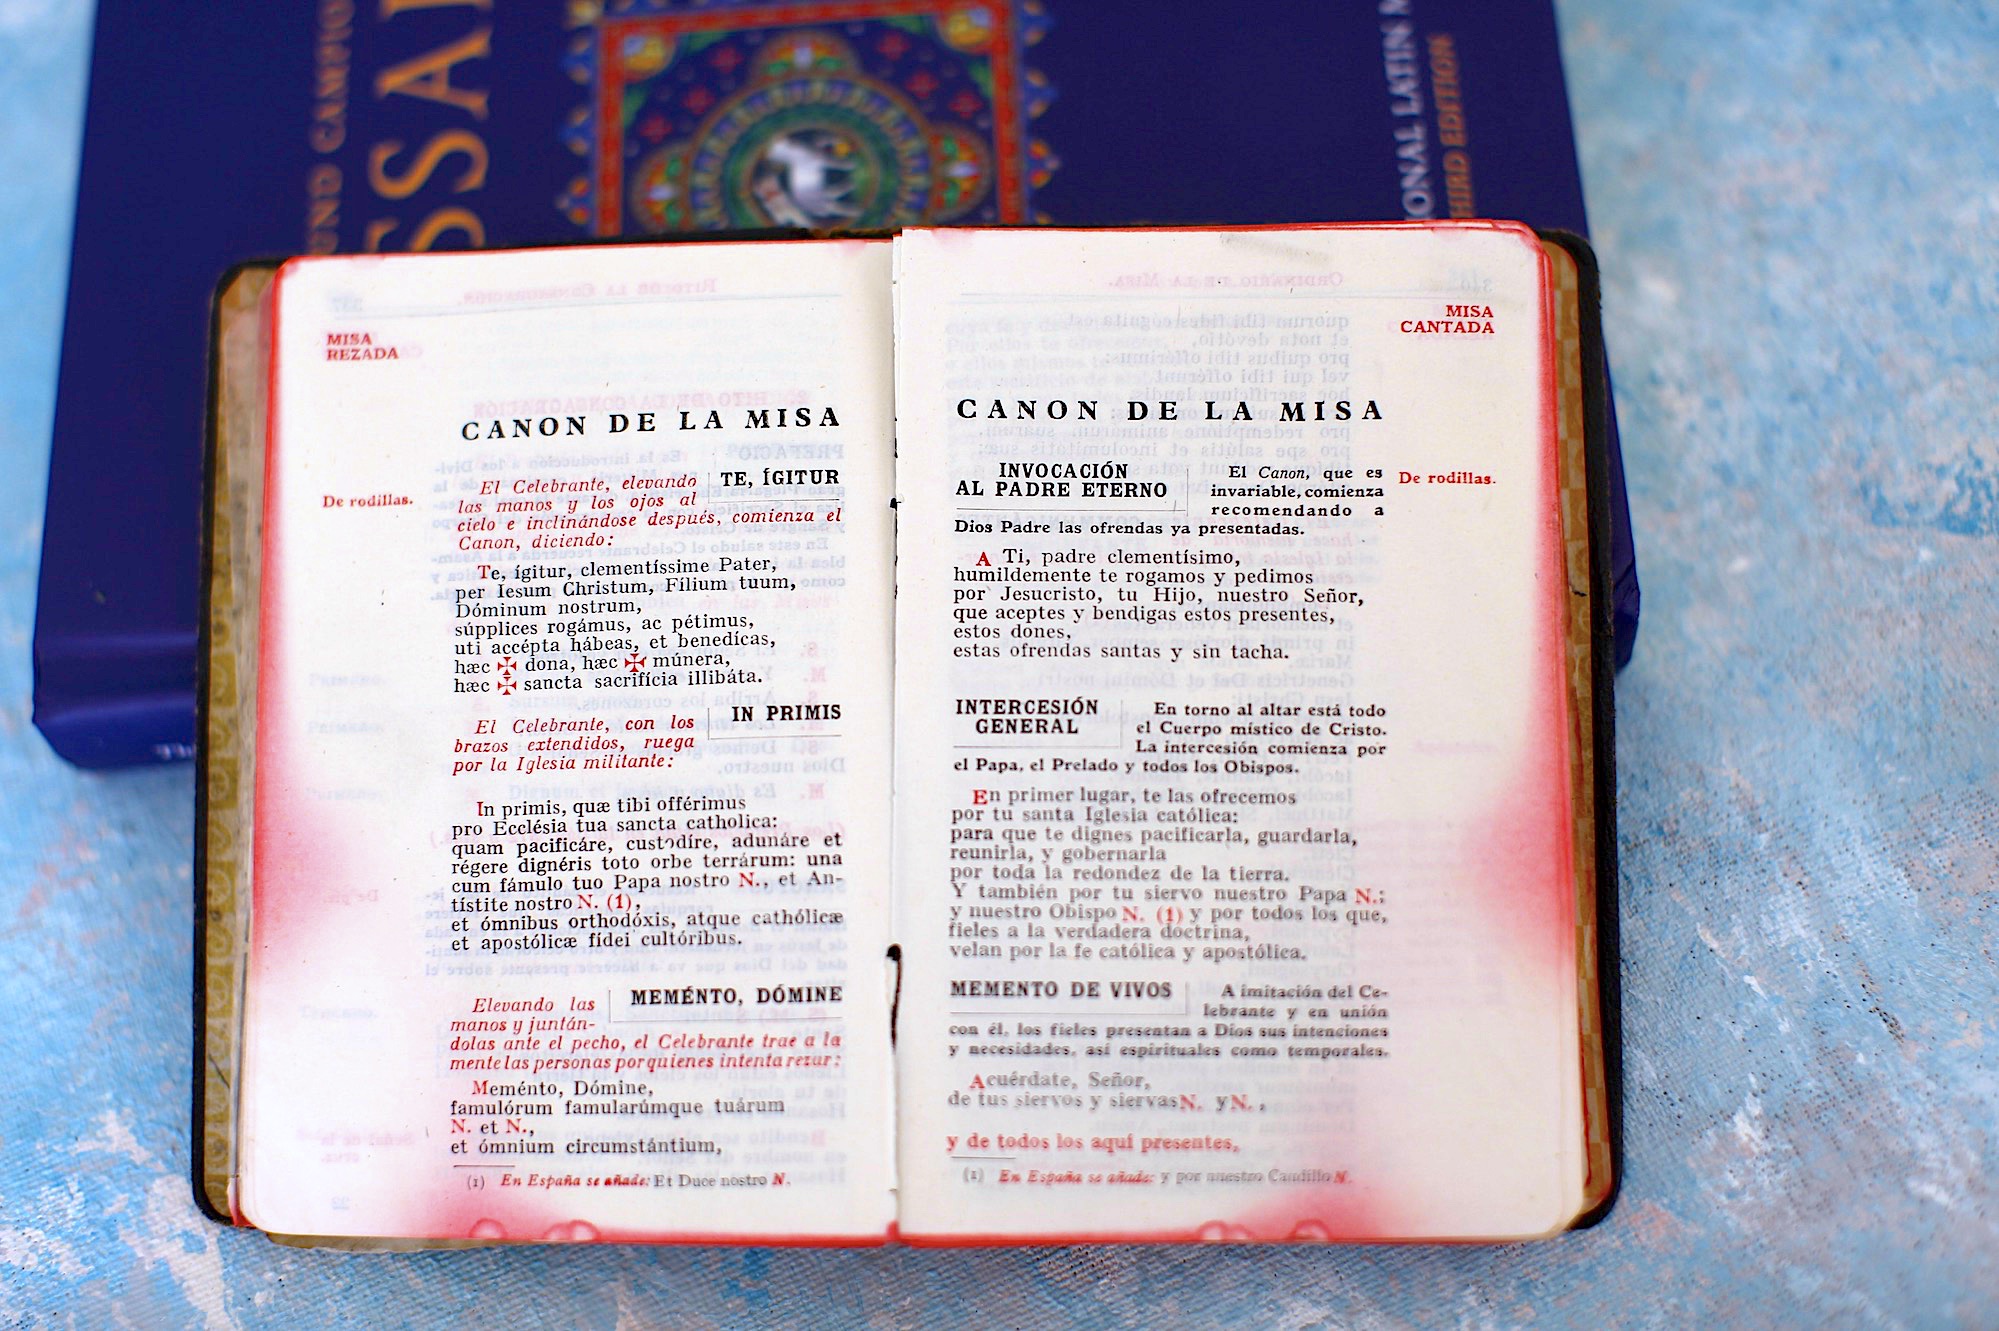 UND CAMPIO
SSAL
ONAL LATIN M
THIRD EDITION
MISA
REZADA
CANON DE LA MISA
TE, ÍGITUR
De rodillas.
El Celebrante, elevando
las manos y los ojos al
cielo e inclinándose después, comienza el
Canon, diciendo:
Te, ígitur, clementíssime Pater,
per Iesum Christum, Fílium tuum,
Dóminum nostrum,
súpplices rogámus, ac pétimus,
uti accépta hábeas, et benedícas,
hæc ✠ dona, hæc ✠ múnera,
hæc ✠ sancta sacrifícia illibáta.
IN PRIMIS
El Celebrante, con los
brazos extendidos, ruega
por la Iglesia militante:
In primis, quæ tibi offérimus
pro Ecclésia tua sancta catholica:
quam pacificáre, custodíre, adunáre et
régere dignéris toto orbe terrárum: una
cum fámulo tuo Papa nostro N., et An-
tístite nostro N. (1),
et ómnibus orthodóxis, atque cathólicæ
et apostólicæ fídei cultóribus.
MEMÉNTO, DÓMINE
Elevando las
manos y juntán-
dolas ante el pecho, el Celebrante trae a la
mente las personas por quienes intenta rezar:
Meménto, Dómine,
famulórum famularúmque tuárum
N. et N.,
et ómnium circumstántium,
(1) En España se añade: Et Duce nostro N.
MISA
CANTADA
CANON DE LA MISA
INVOCACIÓN
AL PADRE ETERNO
El Canon, que es
invariable, comienza
recomendando a
Dios Padre las ofrendas ya presentadas.
De rodillas.
A Ti, padre clementísimo,
humildemente te rogamos y pedimos
por Jesucristo, tu Hijo, nuestro Señor,
que aceptes y bendigas estos presentes,
estos dones,
estas ofrendas santas y sin tacha.
INTERCESIÓN
GENERAL
En torno al altar está todo
el Cuerpo místico de Cristo.
La intercesión comienza por
el Papa, el Prelado y todos los Obispos.
En primer lugar, te las ofrecemos
por tu santa Iglesia católica:
para que te dignes pacificarla, guardarla,
reunirla, y gobernarla
por toda la redondez de la tierra.
Y también por tu siervo nuestro Papa N.;
y nuestro Obispo N. (1) y por todos los que,
fieles a la verdadera doctrina,
velan por la fe católica y apostólica.
MEMENTO DE VIVOS
A imitación del Ce-
lebrante y en unión
con él, los fieles presentan a Dios sus intenciones
y necesidades, así espirituales como temporales.
Acuérdate, Señor,
de tus siervos y siervas N. y N.,
y de todos los aquí presentes,
(1) En España se añade: y por nuestro Caudillo N.